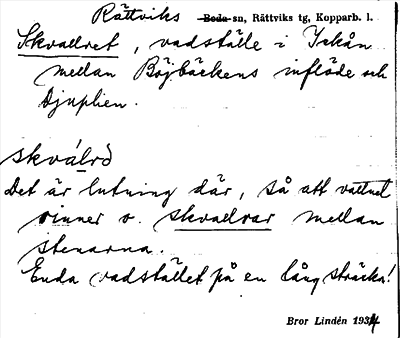 Rättviks Boda-sn, Rättviks tg, Kopparb. l.
Skvallret, vadställe i Ickån
mellan Böjbäckens inflöde och
Djuplien.
skválrə
Det är lutning där, så att vattnet
rinner o. skvallrar mellan
stenarna.
Enda vadstället på en lång sträcka!
Bror Lindén 1934